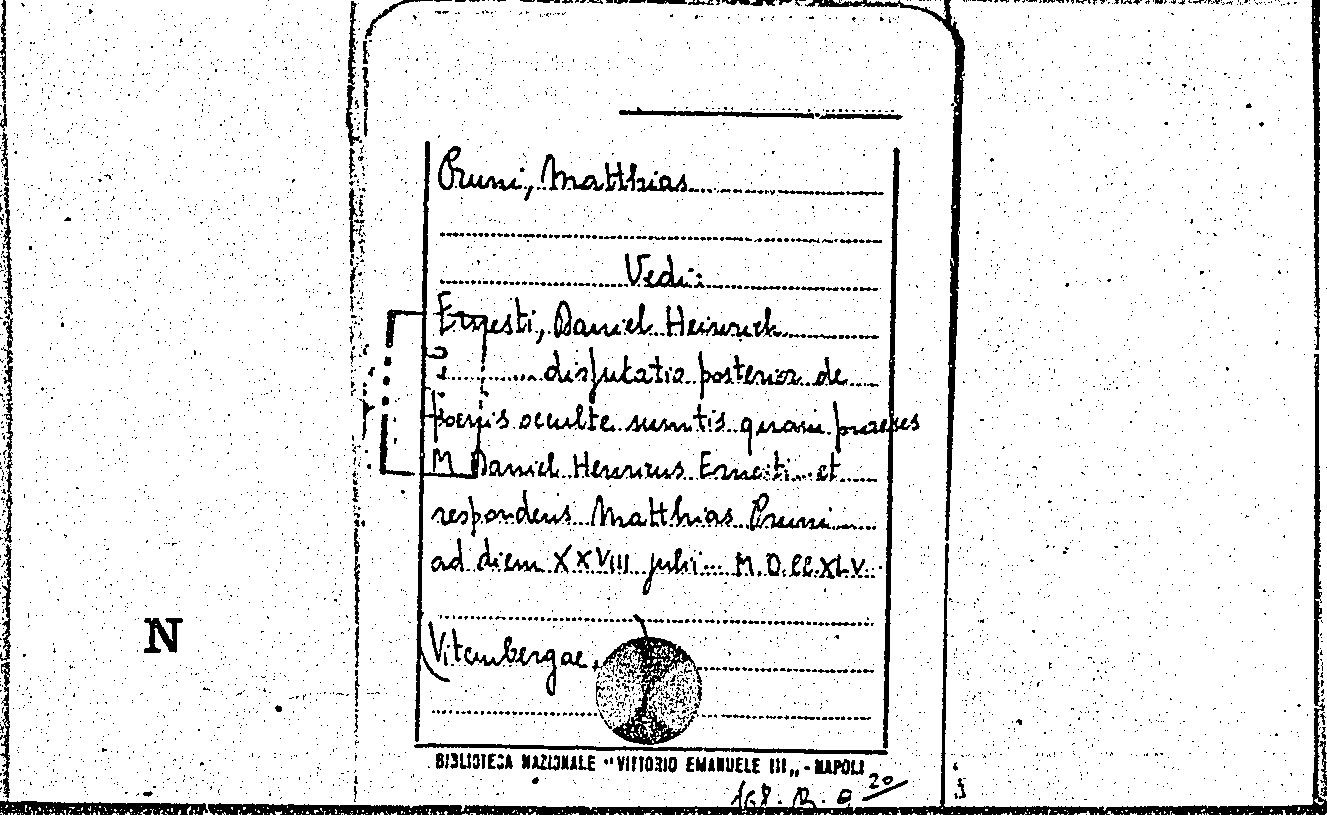 Pruni, Matthias
Vedi:
Ernesti, Daniel Heinrich
disputatio posterior de
poenis occulte sumtis quam praeses
M Daniel Henricus Ernesti et
respondens Matthias Pruni
ad diem XXVIII julii M.D.CC.XLV.
N
Vitembergae,
BIBLIOTECA NAZIONALE "VITTORIO EMANUELE III,, - NAPOLI
168. B. 20